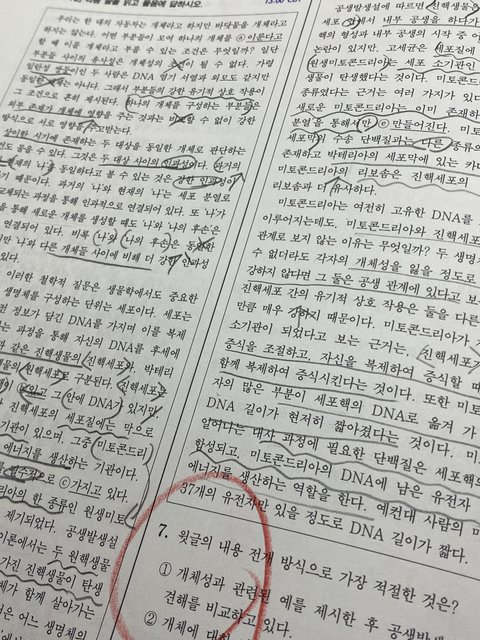 우리는 한 대의 자동차는 개체라고 하지만 바닷물을 개체라고
하지는 않는다. 어떤 부분들이 모여 하나의 개체를 ⓐ이룬다고
할 때 이를 개체라고 부를 수 있는 조건은 무엇일까? 일단
부분들 사이의 유사성은 개체성의 조건이 될 수 없다. 가령
일란성 쌍둥이인 두 사람은 DNA 염기 서열과 외모도 같지만
동일한 개체는 아니다. 그래서 부분들의 강한 유기적 상호 작용이
그 조건으로 흔히 제시된다. 하나의 개체를 구성하는 부분들은
외부 존재가 개체에 영향을 주는 것과는 비교할 수 없이 강한
방식으로 서로 영향을 주고받는다.
상이한 시기에 존재하는 두 대상을 동일한 개체로 판단하는
도 물을 수 있다. 그것은 두 대상 사이의 인과성이다. 과거의
현재의 '나'를 동일하다고 볼 수 있는 것은 강한 인과성이
기 때문이다. 과거의 '나'와 현재의 '나'는 세포 분열로
교체되는 과정을 통해 인과적으로 연결되어 있다. 또 '나'가
을 통해 새로운 개체를 생성할 때도 '나'와 '나의 후손'은
연결되어 있다. 비록 '나'와 '나의 후손'은 동일한
지만 '나'와 다른 개체들 사이에 비해 더 강한 인과성
있다.
이러한 철학적 질문은 생물학에서도 중요한
생명체를 구성하는 단위는 세포이다. 세포는
전 정보가 담긴 DNA를 가지며 이를 복제
는 과정을 통해 자신의 DNA를 후세에
과 같은 진핵생물의 진핵세포와, 박테리
물의 원핵세포로 구분된다. 진핵세포는
있고 그 안에 DNA가 있지만,
진핵세포의 세포질에는 막으로
기관이 있으며, 그중 미토콘드리
에너지를 생산하는 기관이다.
필수적으로 ⓒ가지고 있다.
리아의 한 종류인 원생미토
제기되었다. 공생발생설
이론에서는 두 원핵생물
가진 진핵생물이 탄생
체가 함께 살아가는
은 어느 생명체의
공생발생설에 따르면 진핵생물은
세포에서 내부 공생을 하다가
핵의 형성과 내부 공생의 시작 중 어
논란이 있지만, 고세균은 세포질에
원생미토콘드리아는 세포 소기관인
생물이 탄생했다는 것이다. 미토콘드
종류였다는 근거는 여러 가지가 있다.
새로운 미토콘드리아는 이미 존재하
분열을 통해서만 ⓔ만들어진다. 미토콘드
세포막의 수송 단백질과는 다른 종류의
존재하고 박테리아의 세포막에 있는 카디
미토콘드리아의 리보솜은 진핵세포의
리보솜과 더 유사하다.
미토콘드리아는 여전히 고유한 DNA를
이루어지는데도, 미토콘드리아와 진핵세포
관계로 보지 않는 이유는 무엇일까? 두 생명체
수 없더라도 각자의 개체성을 잃을 정도로
강하지 않다면 그 둘은 공생 관계에 있다고 보
진핵세포 간의 유기적 상호 작용은 둘을 다른
만큼 매우 강하기 때문이다. 미토콘드리아가
소기관이 되었다고 보는 근거는, 진핵세포가
증식을 조절하고, 자신을 복제하여 증식할 때
함께 복제하여 증식시킨다는 것이다. 또한 미토
자의 많은 부분이 세포핵의 DNA로 옮겨 가
DNA 길이가 현저히 짧아졌다는 것이다. 미
일어나는 대사 과정에 필요한 단백질은 세포핵의
합성되고, 미토콘드리아의 DNA에 남은 유전자
에너지를 생산하는 역할을 한다. 예컨대 사람의 미
37개의 유전자만 있을 정도로 DNA 길이가 짧다.
7. 윗글의 내용 전개 방식으로 가장 적절한 것은?
① 개체성과 관련된 예를 제시한 후 공생발생
견해를 비교하고 있다.
② 개체에 대한